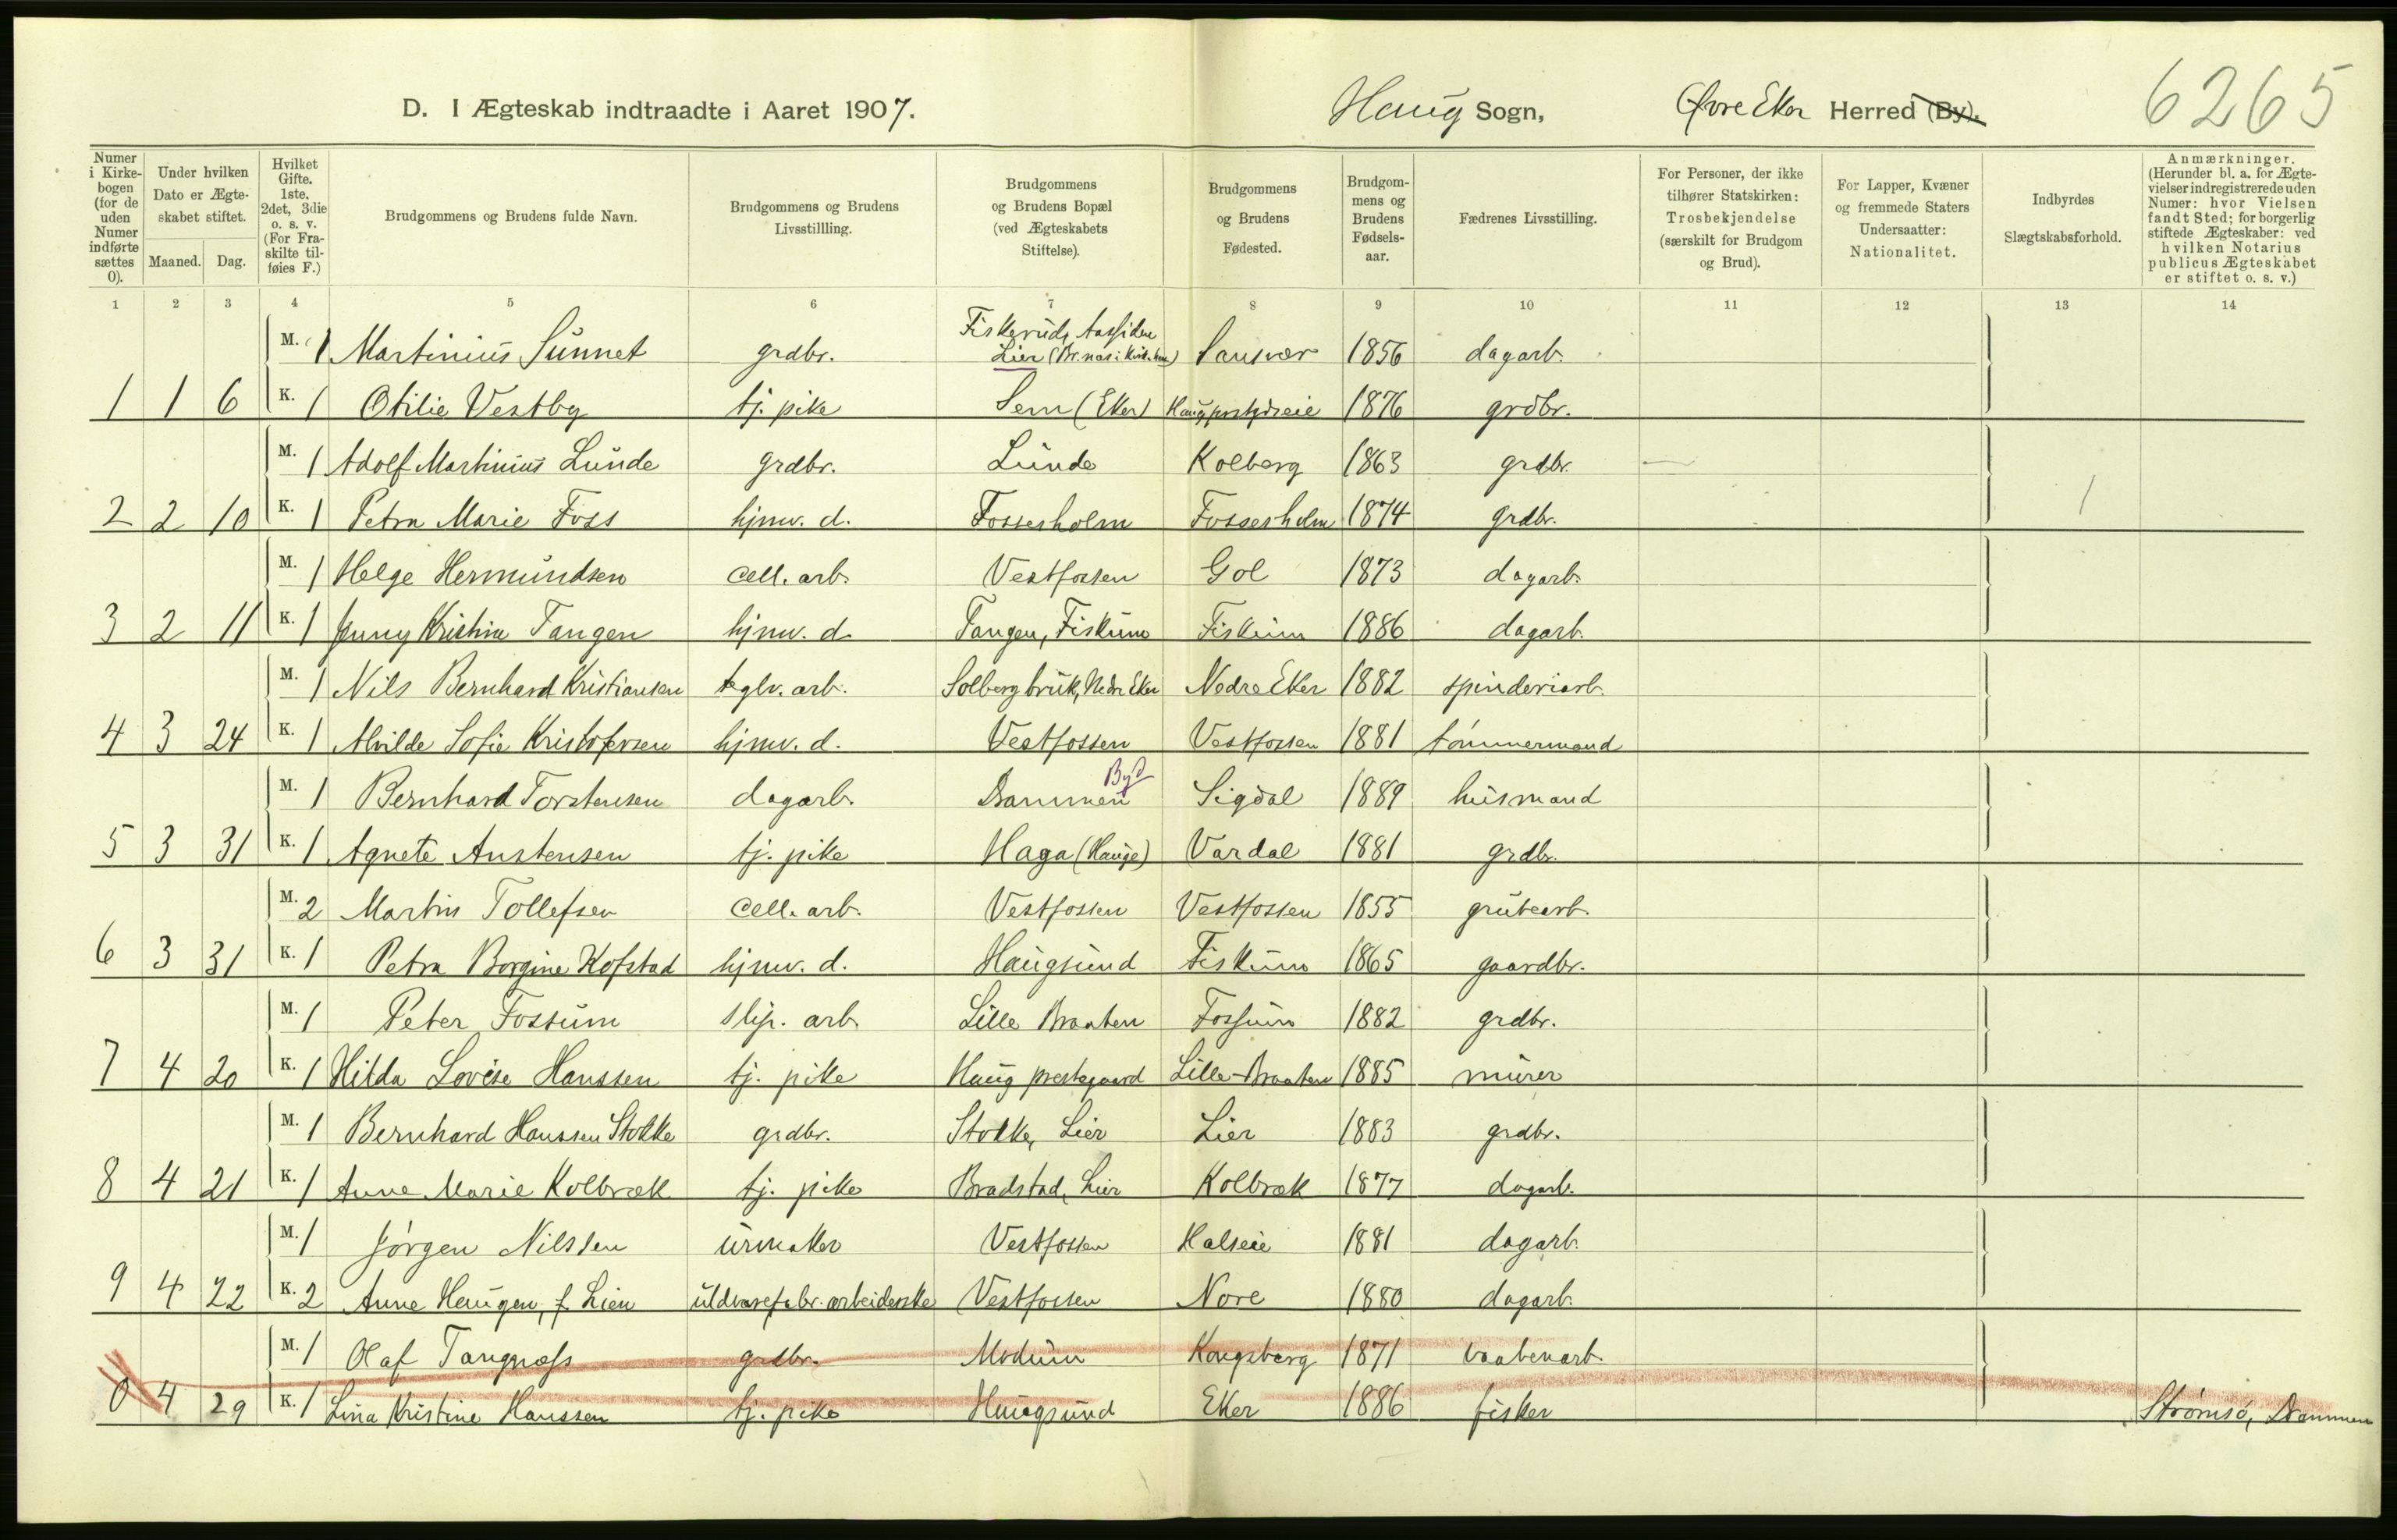 6265
D. I Ægteskab indtraadte i Aaret 1907. Haug Sogn, Øvre Eker Herred (By).
Numer i Kirkebogen (for de uden Numer indførte sættes 0).
Under hvilken Dato er Ægteskabet stiftet.
Maaned. Dag.
Hvilket Gifte. 1ste, 2det, 3die o. s. v. (For Fraskilte tilføies F.)
Brudgommens og Brudens fulde Navn.
Brudgommens og Brudens Livsstillling.
Brudgommens og Brudens Bopæl (ved Ægteskabets Stiftelse).
Brudgommens og Brudens Fødested.
Brudgommens og Brudens Fødselsaar.
Fædrenes Livsstilling.
For Personer, der ikke tilhører Statskirken: Trosbekjendelse (særskilt for Brudgom og Brud).
For Lapper, Kvæner og fremmede Staters Undersaatter: Nationalitet.
Indbyrdes Slægtskabsforhold.
Anmærkninger. (Herunder bl. a. for Ægtevielser indregistrerede uden Numer: hvor Vielsen fandt Sted; for borgerlig stiftede Ægteskaber: ved hvilken Notarius publicus Ægteskabet er stiftet o. s. v.)
1 2 3 4 5 6 7 8 9 10 11 12 13 14
M. 1 Martinius Sunnet grdbr. Fiskerud, Aassiden Lier 1856 dagarb.
1 1 6 K. 1 Otilie Vestby tj. pike Sem (Eker) 1876 grdbr.
M. 1 Adolf Martinius Lunde grdbr. Lunde Kolberg 1863 grdbr.
2 2 10 K. 1 Petra Marie Foss hjmv. d. Fossesholm Fossesholm 1874 grdbr. 1
M. 1 Helge Hermundsen cell. arb. Vestfossen Gol 1873 dagarb.
3 2 11 K. 1 Jenny Kristine Tangen hjmv. d. Tangen, Fiskum Fiskum 1886 dagarb.
M. 1 Nils Bernhard Kristiansen tglv. arb. Solbergbruk, Nedre Eker Nedre Eker 1882 spinderiarb.
4 3 24 K. 1 Alvilde Sofie Kristofersen hjmv. d. Vestfossen Vestfossen 1881 tømmermand
M. 1 Bernhard Torstensen dagarb. Drammen Sigdal 1889 husmand
5 3 31 K. 1 Agnete Austensen tj. pike Haga (Hauge) Vardal 1881 grdbr.
M. 2 Martin Tollefsen cell. arb. Vestfossen Vestfossen 1855 grubearb.
6 3 31 K. 1 Petra Borgine Hofstad hjmv. d. Haugsund Fiskum 1865 gaardbr.
M. 1 Peter Fossum slip. arb. Lille Braaten Fossum 1882 grdbr.
7 4 20 K. 1 Hilda Lovise Hanssen tj. pike Haug prestegaard Lille-Braaten 1885 murer
M. 1 Bernhard Hanssen Stokke grdbr. Stokke, Lier Lier 1883 grdbr.
8 4 21 K. 1 Anne Marie Kolbræk tj. pike Bradstad, Lier Kolbræk 1877 dagarb.
M. 1 Jørgen Nilssen urmaker Vestfossen Halseie 1881 dagarb.
9 4 22 K. 2 Anne Haugen, f. Lien uldvarefabr. arbeiderske Vestfossen Nore 1880 dagarb.
M. 1 Olaf Tangnæss grdbr. Modum Kongsberg 1871 vaabenarb.
0 4 29 K. 1 Lina Kristine Hanssen tj. pike Haugsund Eker 1886 fisker Strømsø, Drammen